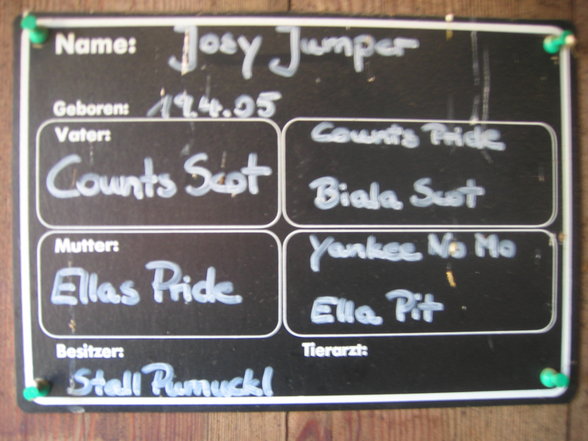 Name: Josy Jumper
Geboren: 19.4.05
Vater:
Counts Scot
Counts Pride
Biala Scot
Mutter:
Ellas Pride
Yankee No Mo
Ella Pit
Besitzer:
Stall Pumuckl
Tierarzt: